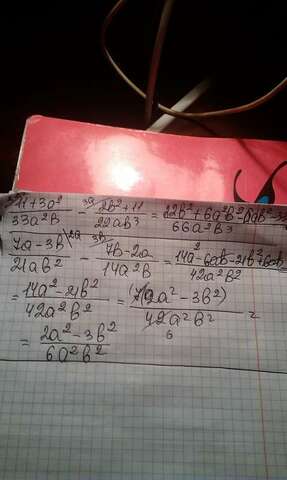 11+3a² / 33a²b - 2b²+11 / 22ab³ = 22b²+6a²b²-6ab²-33 / 66a²b³
7a-3b \2a / 21ab² - 3b 7b-2a / 14a²b = 14a²-6ab-21b²+6ab / 42a²b²
= 14a²-21b² / 42a²b² = 7(2a²-3b²) / 42a²b² =
6
= 2a²-3b² / 6a²b²